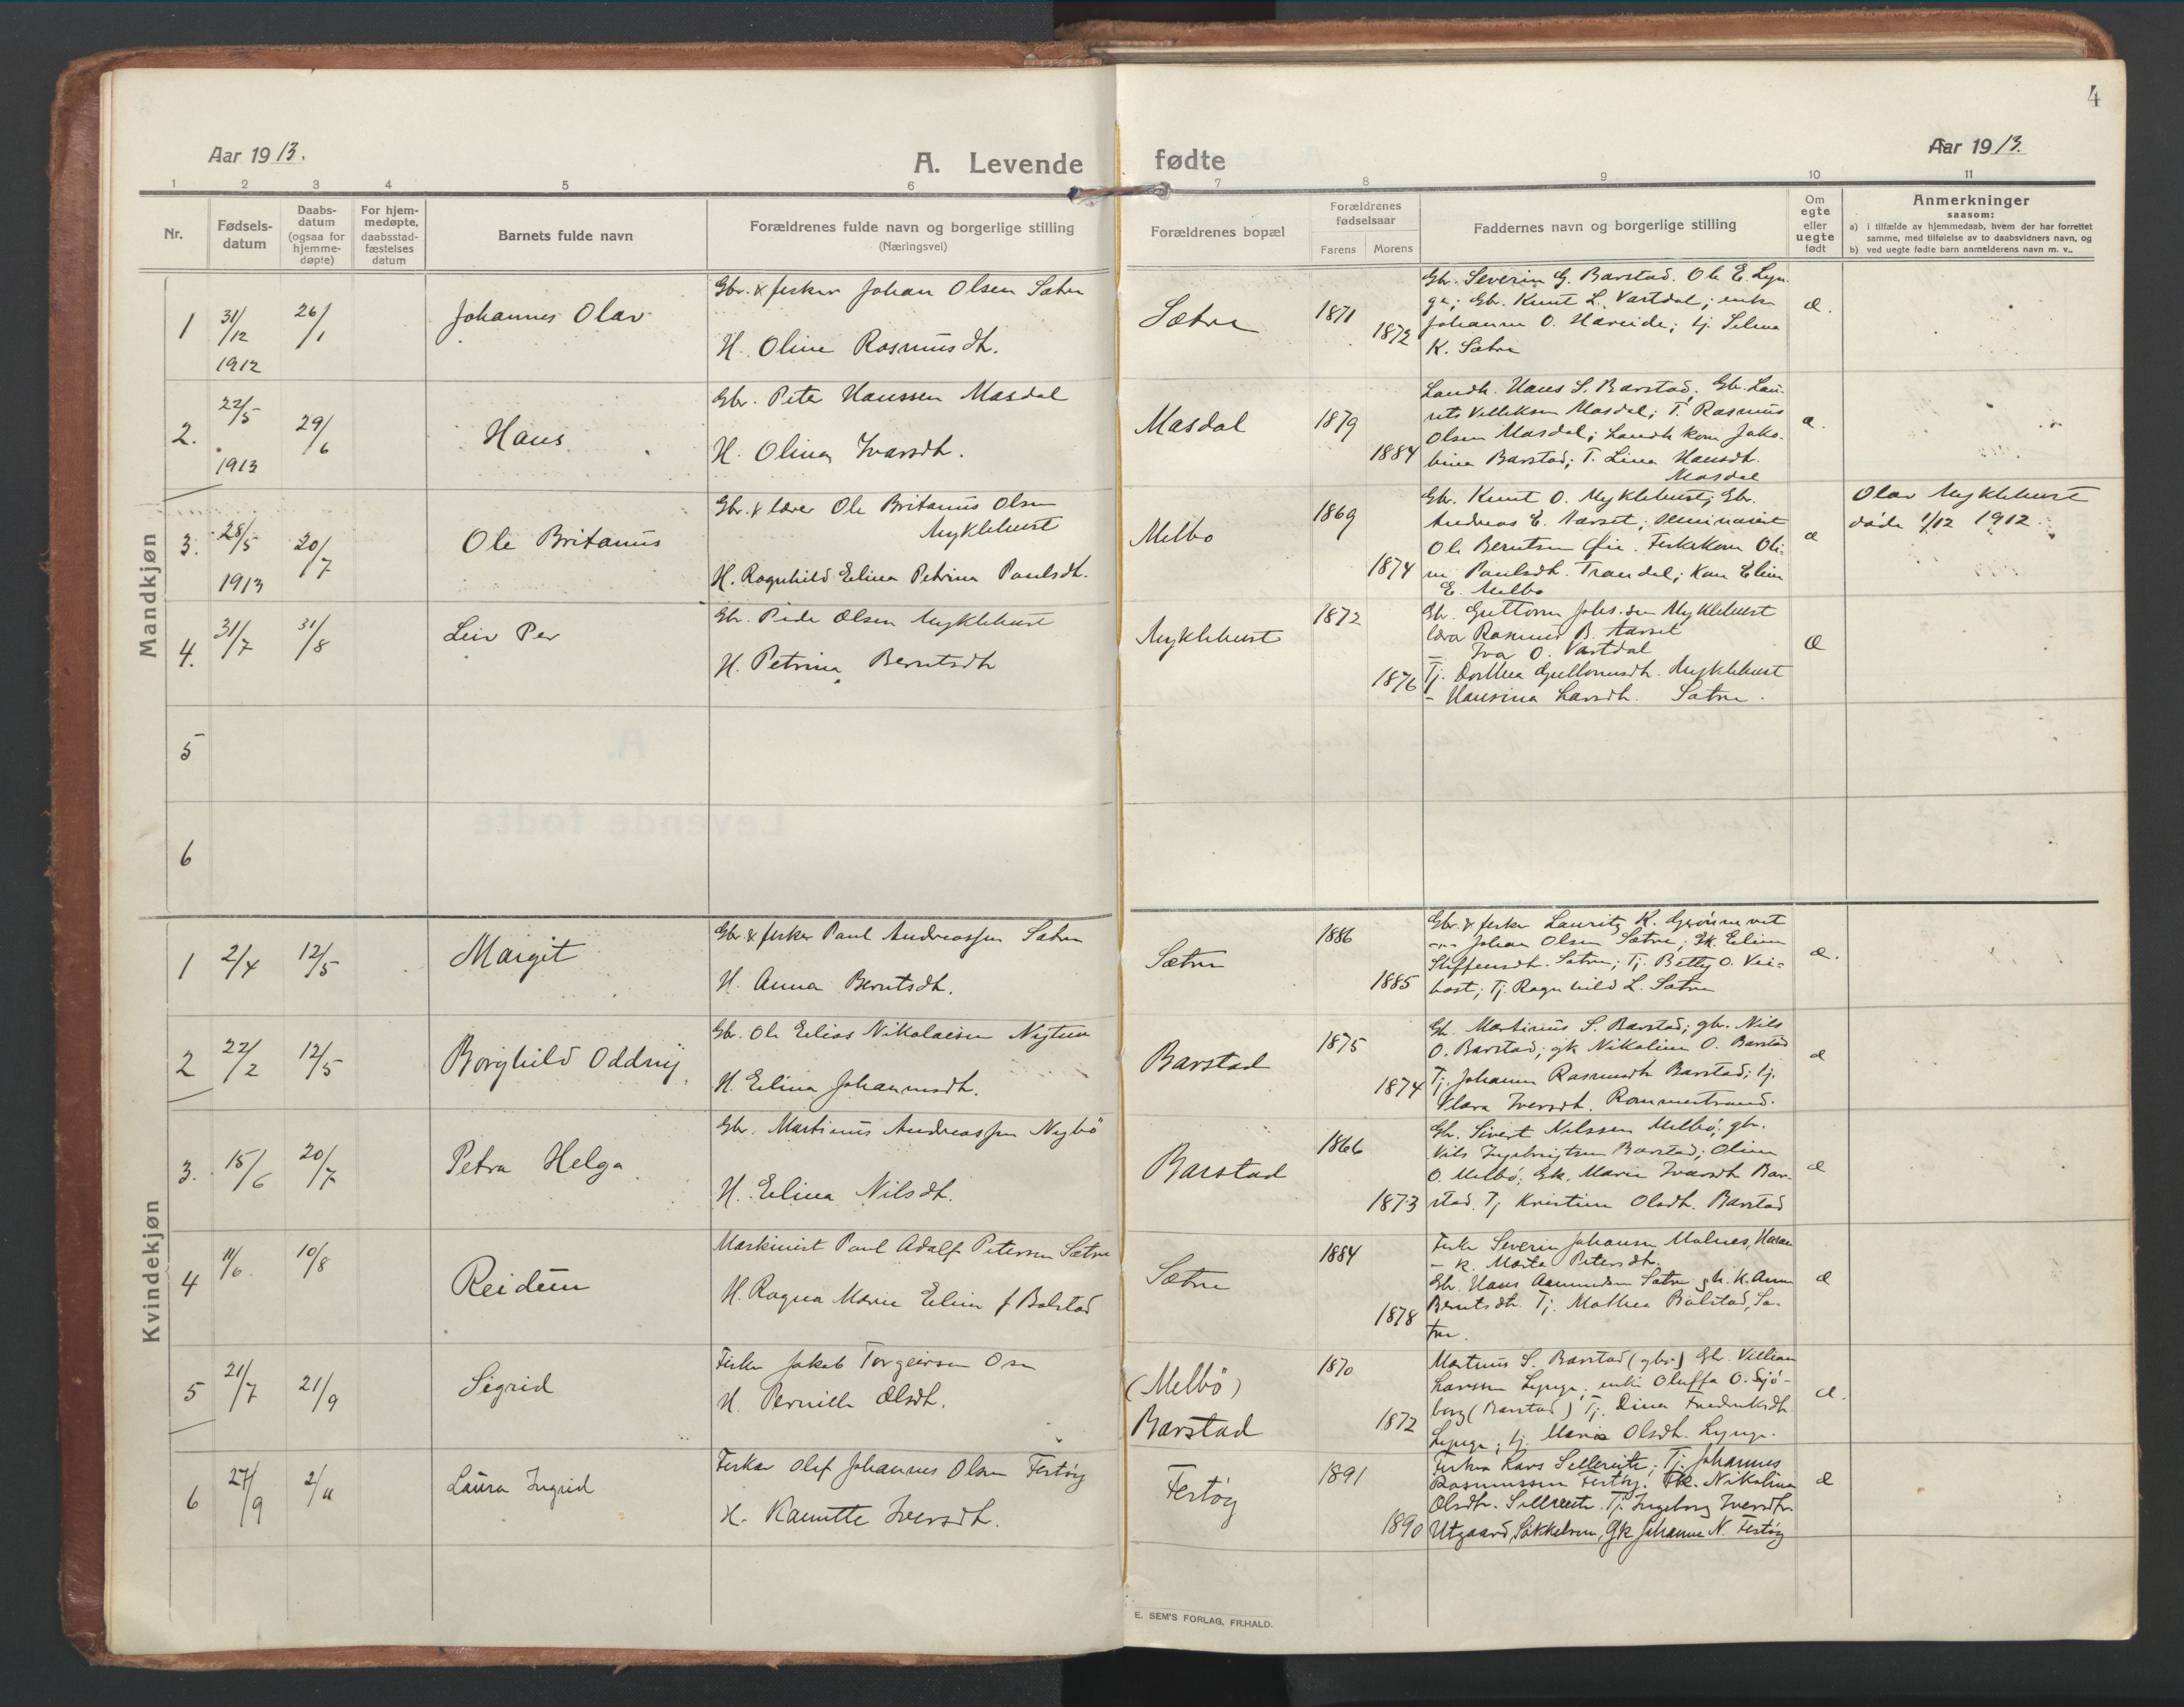 4
Aar 1913.
A. Levende fødte
Aar 1913.
1 2 3 4 5 6 7 8 9 10 11
Nr.
Fødsels-
datum
Daabs-
datum
(ogsaa for
hjemme-
døpte)
For hjem-
medøpte,
daabsstad-
fæstelses
datum
Barnets fulde navn
Forældrenes fulde navn og borgerlige stilling
(Næringsvei)
Forældrenes bopæl
Forældrenes
fødselsaar
Farens Morens
Faddernes navn og borgerlige stilling
Om
egte
eller
uegte
født
Anmerkninger
saasom:
a) i tilfælde av hjemmedaab, hvem der har forrettet
samme, med tilføielse av to daabsvidners navn, og
b) ved uegte fødte barn anmelderens navn m. v..
Mandkjøn
1
31/12
1912
26/1
Johannes Olav
Gbr. & fisker Johan Olsen Sætre
H. Oline Rasmusdt.
Sætre
1871
1872
Gbr. Severin G. Barstad. Ole E. Lyn-
ge; Gbr. Knut L. Vartdal; enke
Johanne O. Hareide; tj. Selma
K. Sætre
æ.
2.
22/5
1913
29/6
Hans
Gbr. Peter Hanssen Masdal
H. Olina Ivarsdt.
Masdal
1879
1884
Landh. Hans S. Barstad; Gbr. Lau-
rits Masdal; T. Rasmus
Olsen Masdal; Landh kone Jako-
bina Barstad; T. Lina Hansdt.
Masdal
æ.
3.
28/5
1913
20/7
Ole Britanus
Gbr. & lærer Ole Britanus Olsen
Myklebust
H. Ragnhild Elina Petrina Paulsdt.
Melbo
1869
1874
Gbr. Knut O. Myklebust; Gbr.
Andreas E. Aarset; seminarist
Ole Berntsen Øie. Fiskekone Oli-
ne Paulsdt. Trandal; Kone Eline
E. Melbo
æ
Olav Myklebust
døde 1/12 1912.
4.
31/7
31/8
Leiv Per
Gbr. Peder Olsen Myklebust
H. Petrina Berntsdt
Myklebust
1872
1876
Gbr. Guttorm Johs.sen Myklebust
lærer Rasmus B. Aarset
— Ivar O. Vartdal
Tj. Dorthea Guttormsdt. Myklebust
- Hansina Larsdt. Sætre.
æ
5
6
Kvindekjøn
1
2/4
12/5
Margit
Gbr. & fisker Paul Andreassen Sætre
H. Anna Berntsdt.
Sætre
1886
1885
Gbr. & fisker Lauritz K. Grönnevet
-"- Johan Olsen Sætre; Gk. Eline
Steffensdt. Sætre; Tj. Betty O. Vei-
bost; Tj. Ragnhild L. Sætre
æ.
2
22/2
12/5
Borghild Oddny
Gbr. Ole Elias Nikolaisen Nytun
H. Elina Johannesdt.
Barstad
1875
1874
Gb. Martinus S. Barstad; gbr. Nils
O. Barstad; gk Nikoline O. Barstad
Tj. Johanne Rasmusdt Barstad; tj.
Klara Iversdt. Rommestrand.
æ
3.
15/6
20/7
Petra Helga
Gbr. Martinus Andreassen Nybö
H. Elina Nilsdt.
Barstad
1866
1873
Gb. Sivert Nilssen Melbö; gbr.
Nils Ingebrigtsen Barstad; Oline
O. Melbö; Gk. Marie Ivarsdt Bar-
stad. Tj Kristine Olsdt. Barstad
æ
4
11/6
10/8
Reidun
Maskinist Paul Adolf Petersen Sætre
H. Ragna Marie Eline f Bolstad
Sætre
1884
1878
Fisker Severin Johansen Molnes, Haram
- k. Marta Petersdt.
Gbr. Hans Aamundsen Sætre gb. k. Anne
Berntsdt. Tj. Mathea Bolstad, Sæ-
tre.
æ
5
21/7
21/9
Sigrid
Fisker Jakob Torgeirsen Osa
H. Pernille Olsdt.
(Melbö)
Barstad
1870
1872
Martinus S. Barstad (gbr.) Gbr. Villiam
Larssen Lynge, enke Oluffa O. Sjö-
borg (Barstad) Tj. Dina Fredriksdt.
Lynge, tj. Maria Olsdt. Lynge.
æ.
6
27/9
2/11
Laura Ingrid
Fisker Olaf Johannes Olsen Festøy
H. Kanutte Iversdt.
Festøy
1891
1890
Fisker Lars Sellereite; Tj. Johannes
Rasmussen Festøy. Fk. Nikolina
Olsdtr. Sellereite. Tj. Ingeborg Iversdtr.
Utgaard, Søkkelven, Gk Johanne N. Festøy
æ
E. SEM'S FORLAG, FR.HALD.